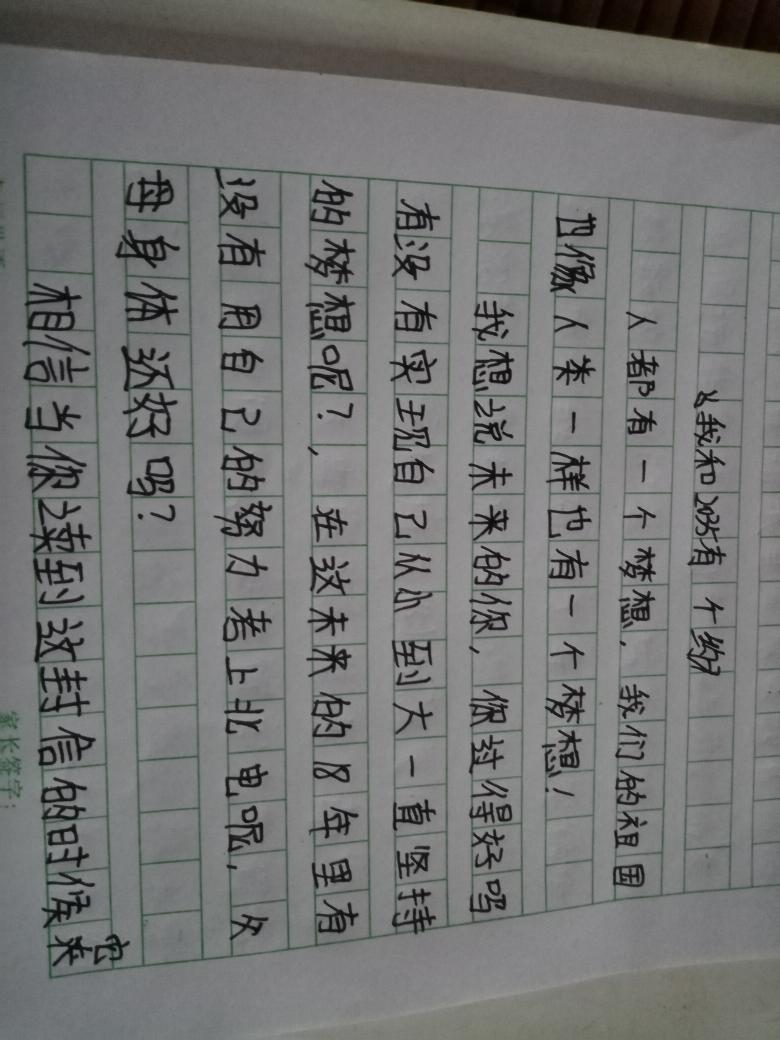 我和2035有个约
人都有一个梦想，我们的祖国
也像人类一样也有一个梦想！
我想说未来的你，你过得好吗
有没有实现自己从小到大一直坚持
的梦想呢？，在这未来的8年里有
没有用自己的努力考上北电呢，父
母身体还好吗？
相信当你读到这封信的时候来
家长签字：